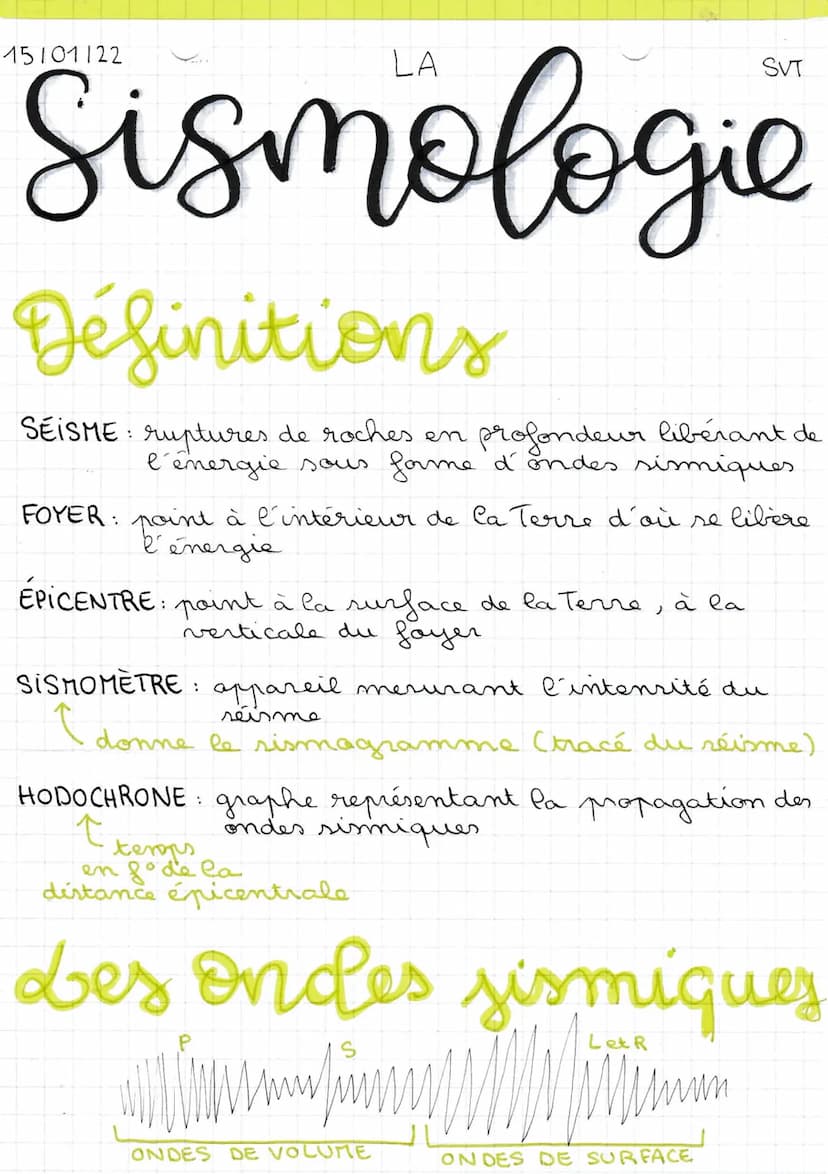 15/01/22
LA
SVT
Sismologie
Définitions
SÉISME : ruptures de roches en profondeur libérant de
l'énergie sous forme d'ondes sismiques
FOYER : point à l'intérieur de la Terre d'où se libère
l'énergie
ÉPICENTRE : point à la surface de la Terre, à la
verticale du foyer
SISMOMÈTRE : appareil mesurant l'intensité du
séisme
donne le sismogramme (tracé du séisme)
HODOCHRONE : graphe représentant la propagation des
ondes sismiques
temps
en f° de la
distance épicentrale
Les ondes sismiques
P
S
L et R
ONDES DE VOLUME
ONDES DE SURFACE